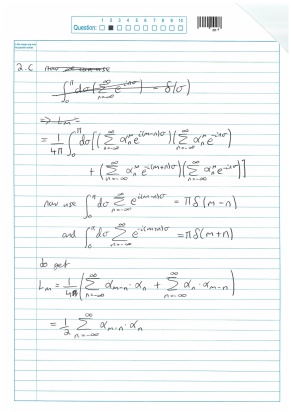 Question: 1 2 3 4 5 6 7 8 9 10
2.c now
∫₀^π dσ(∑_{n=-∞}^{∞} e^{inσ}) = δ(σ)
⇒ Lₘ =
= 1/4π ∫₀^π dσ[(∑_{n=-∞}^{∞} αₙ^μ e^{i(m-n)σ})(∑_{n=-∞}^{∞} αₙ^μ e^{-inσ})
+ (∑_{n=-∞}^{∞} αₙ^μ e^{-i(m+n)σ})(∑_{n=-∞}^{∞} αₙ^μ e^{-inσ})]
now use ∫₀^π dσ ∑_{n=-∞}^{∞} e^{i(m-n)σ} = πδ(m-n)
and ∫₀^π dσ ∑_{n=-∞}^{∞} e^{-i(m+n)σ} = πδ(m+n)
to get
Lₘ = 1/4 (∑_{n=-∞}^{∞} α_{m-n}·αₙ + ∑_{n=-∞}^{∞} αₙ·α_{m-n})
= 1/2 ∑_{n=-∞}^{∞} α_{m-n}·αₙ